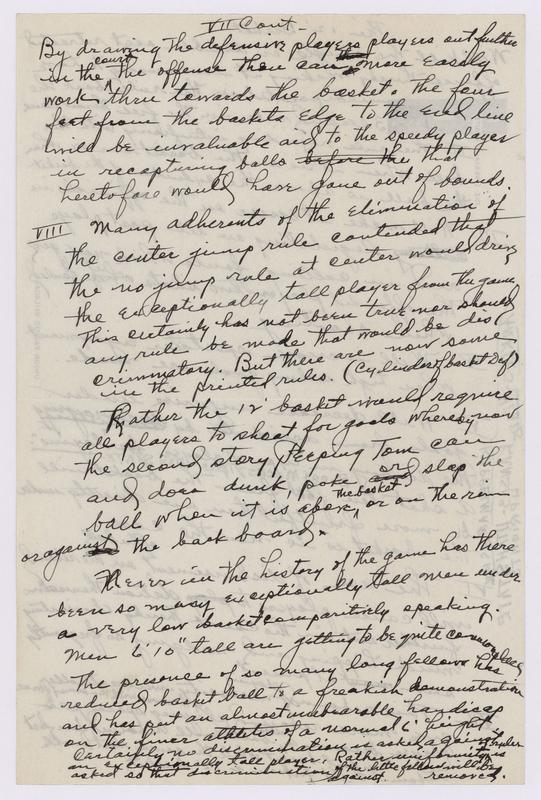 VII Cont.
By drawing the defensive players players out further
in the court the offense then can more easily
work thru towards the basket. The four
feet from the baskets edge to the end line
will be invaluable aid to the speedy player
in recapturing balls before the that
heretofore would have gone out of bounds.
VIII Many adherents of the elimination of
the center jump rule contended that
the no jump rule at center would drive
the exceptionally tall player from the game.
This certainly has not been true nor should
any rule be made that would be dis
criminatory. But there are now some
in the printed rules. (Cylinder of basket Def)
Rather the 12' basket would require
all players to shoot for goals whereby now
the second story Peeping Tom can
and does dunk, poke or slap the
ball when it is above, the basket or on the rim
or against the back board.
Never in the history of the game has there
been so many exceptionally tall men under
a very low basket comparitively speaking.
Men 6' 10" tall are getting to be quite common place
The presence of so many long fellows has
reduced basket ball to a freakish demonstration
and has put an almost unbearable handicap
on the finer athletes of a normal 6' height
Certainly no discrimination is asked against
an exceptionally tall player. Rather uniformity is
asked so that discrimination of the little fellow will be
against removed.